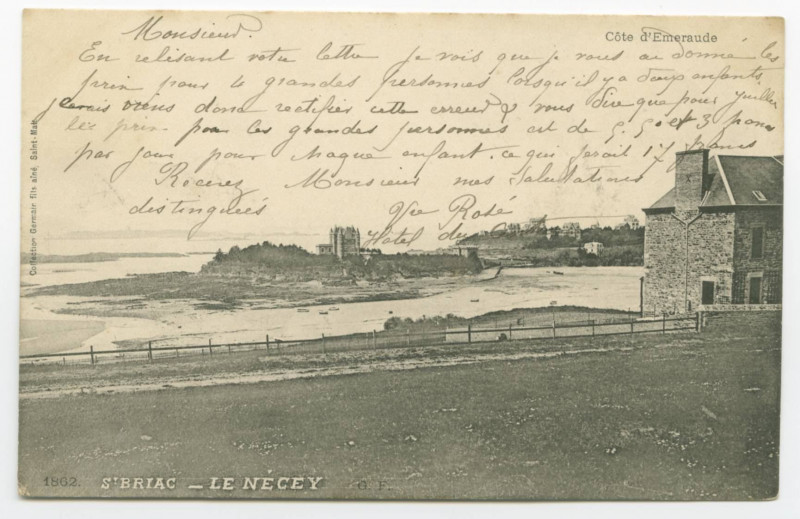 Côte d'Emeraude
Monsieur.
En relisant votre lettre je vois que je vous ai donné les
prix pour 4 grandes personnes lorsqu'il y a deux enfants.
je viens donc rectifier cette erreur & vous dire que pour Juillet
les prix pour les grandes personnes est de 5.50 et 3 francs
par jour pour chaque enfant. ce qui ferait 17 francs
Recevez Monsieur mes Salutations
distinguées Vve Rosé
Hôtel du
Collection Germain fils aîné, Saint-Malo
1862. ST BRIAC — LE NÉCEY G. F.